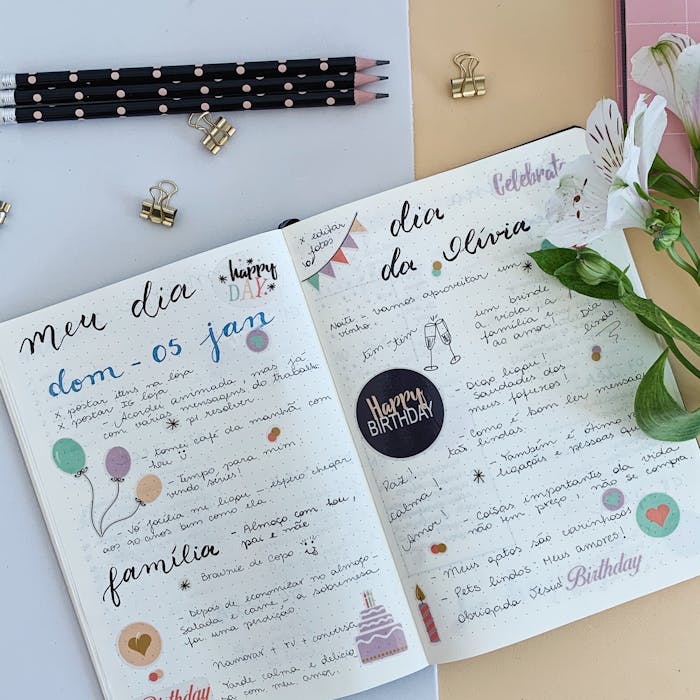 meu dia
happy
DAY.
dom - 05 jan
x postar itens na loja
x postar IG loja
- Acordei animada mas já
com várias mensagens do trabalho:
* pi resolver
- Comei café da manhã com
bau
- Tempo para mim:
vendo séries!
- Vó jacília me ligou - espero chegar
aos 90 anos bem como ela.
família - Almoço com bau,
pai e mãe
Brownie de Copo
- Depois de economizar no almoço -
salada e carne - a sobremesa
foi uma perdição.
Namorar + TV + conversa
Tarde calma e delícia
com meu amor.
Birthday
x editar
fotos
dia
da Olívia
Celebrat
Noite - vamos aproveitar um
vinho
um brinde
a vida, a
família e
ao amor!
Dia
lindo
tim-tim
Happy
BIRTHDAY
- Ouço ligou!
Saudades das
meus fofuxos!
- Como é bom ler mensagens
tão lindas.
Paz!
calma!
Amor!
- Também é ótimo
ligações e pessoas que
- Coisas importantes da vida
não tem preço, não se compra
- Meus gatos são carinhosos
- Pets lindos. Meus amores!
Obrigada Jesus!
Birthday